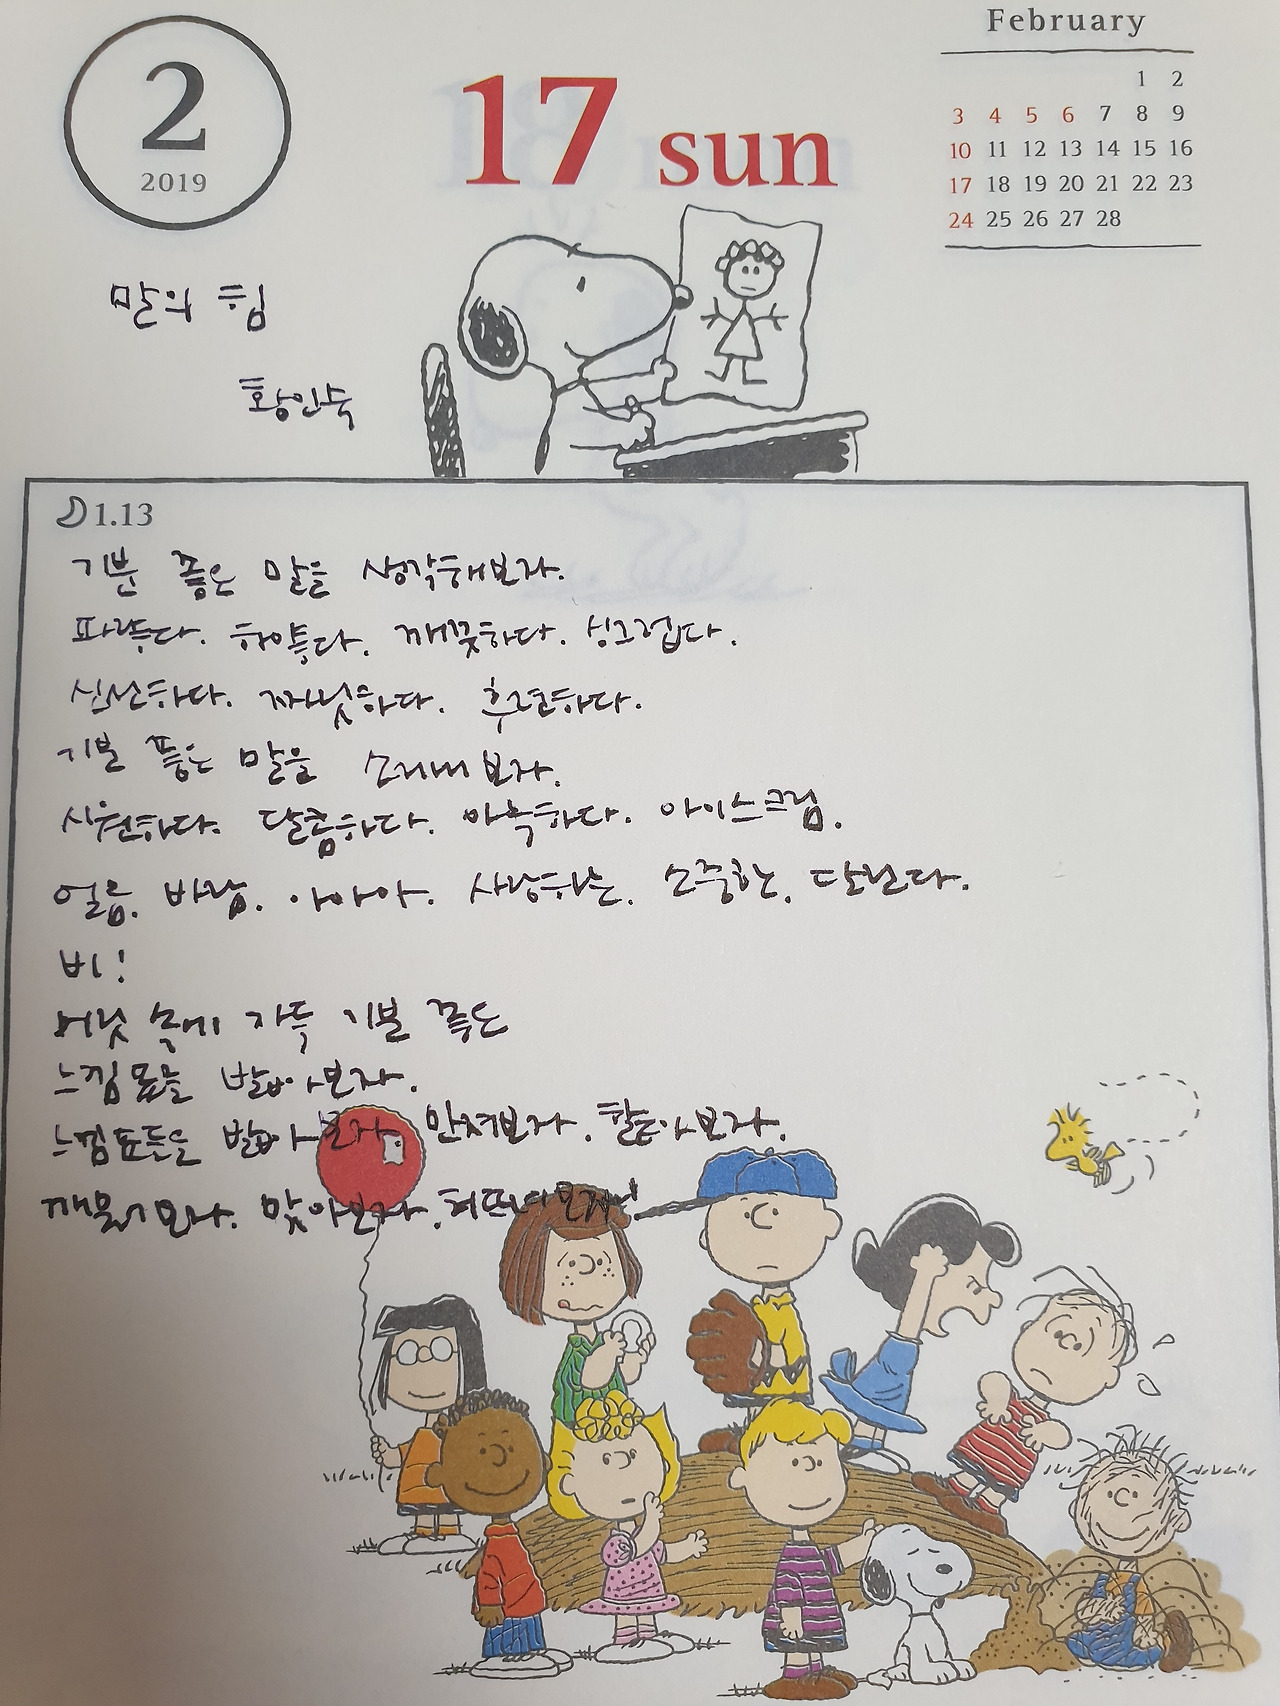 2
2019
17 sun
February
1 2
3 4 5 6 7 8 9
10 11 12 13 14 15 16
17 18 19 20 21 22 23
24 25 26 27 28
말의 힘
황인숙
1.13
기분 좋은 말을 생각해보자.
파랗다. 하얗다. 깨끗하다. 싱그럽다.
신선하다. 짜릿하다. 후련하다.
기분 좋은 말을 소리내보자.
시원하다. 달콤하다. 아늑하다. 아이스크림.
얼음. 바람. 아아아. 사랑하는. 소중한. 달린다.
비!
머릿속에 가득 기분 좋은
느낌표를 밟아보자.
느낌표들을 밟아보자. 만져보자. 핥아보자.
깨물어보자. 맞아보자. 터뜨려보자!